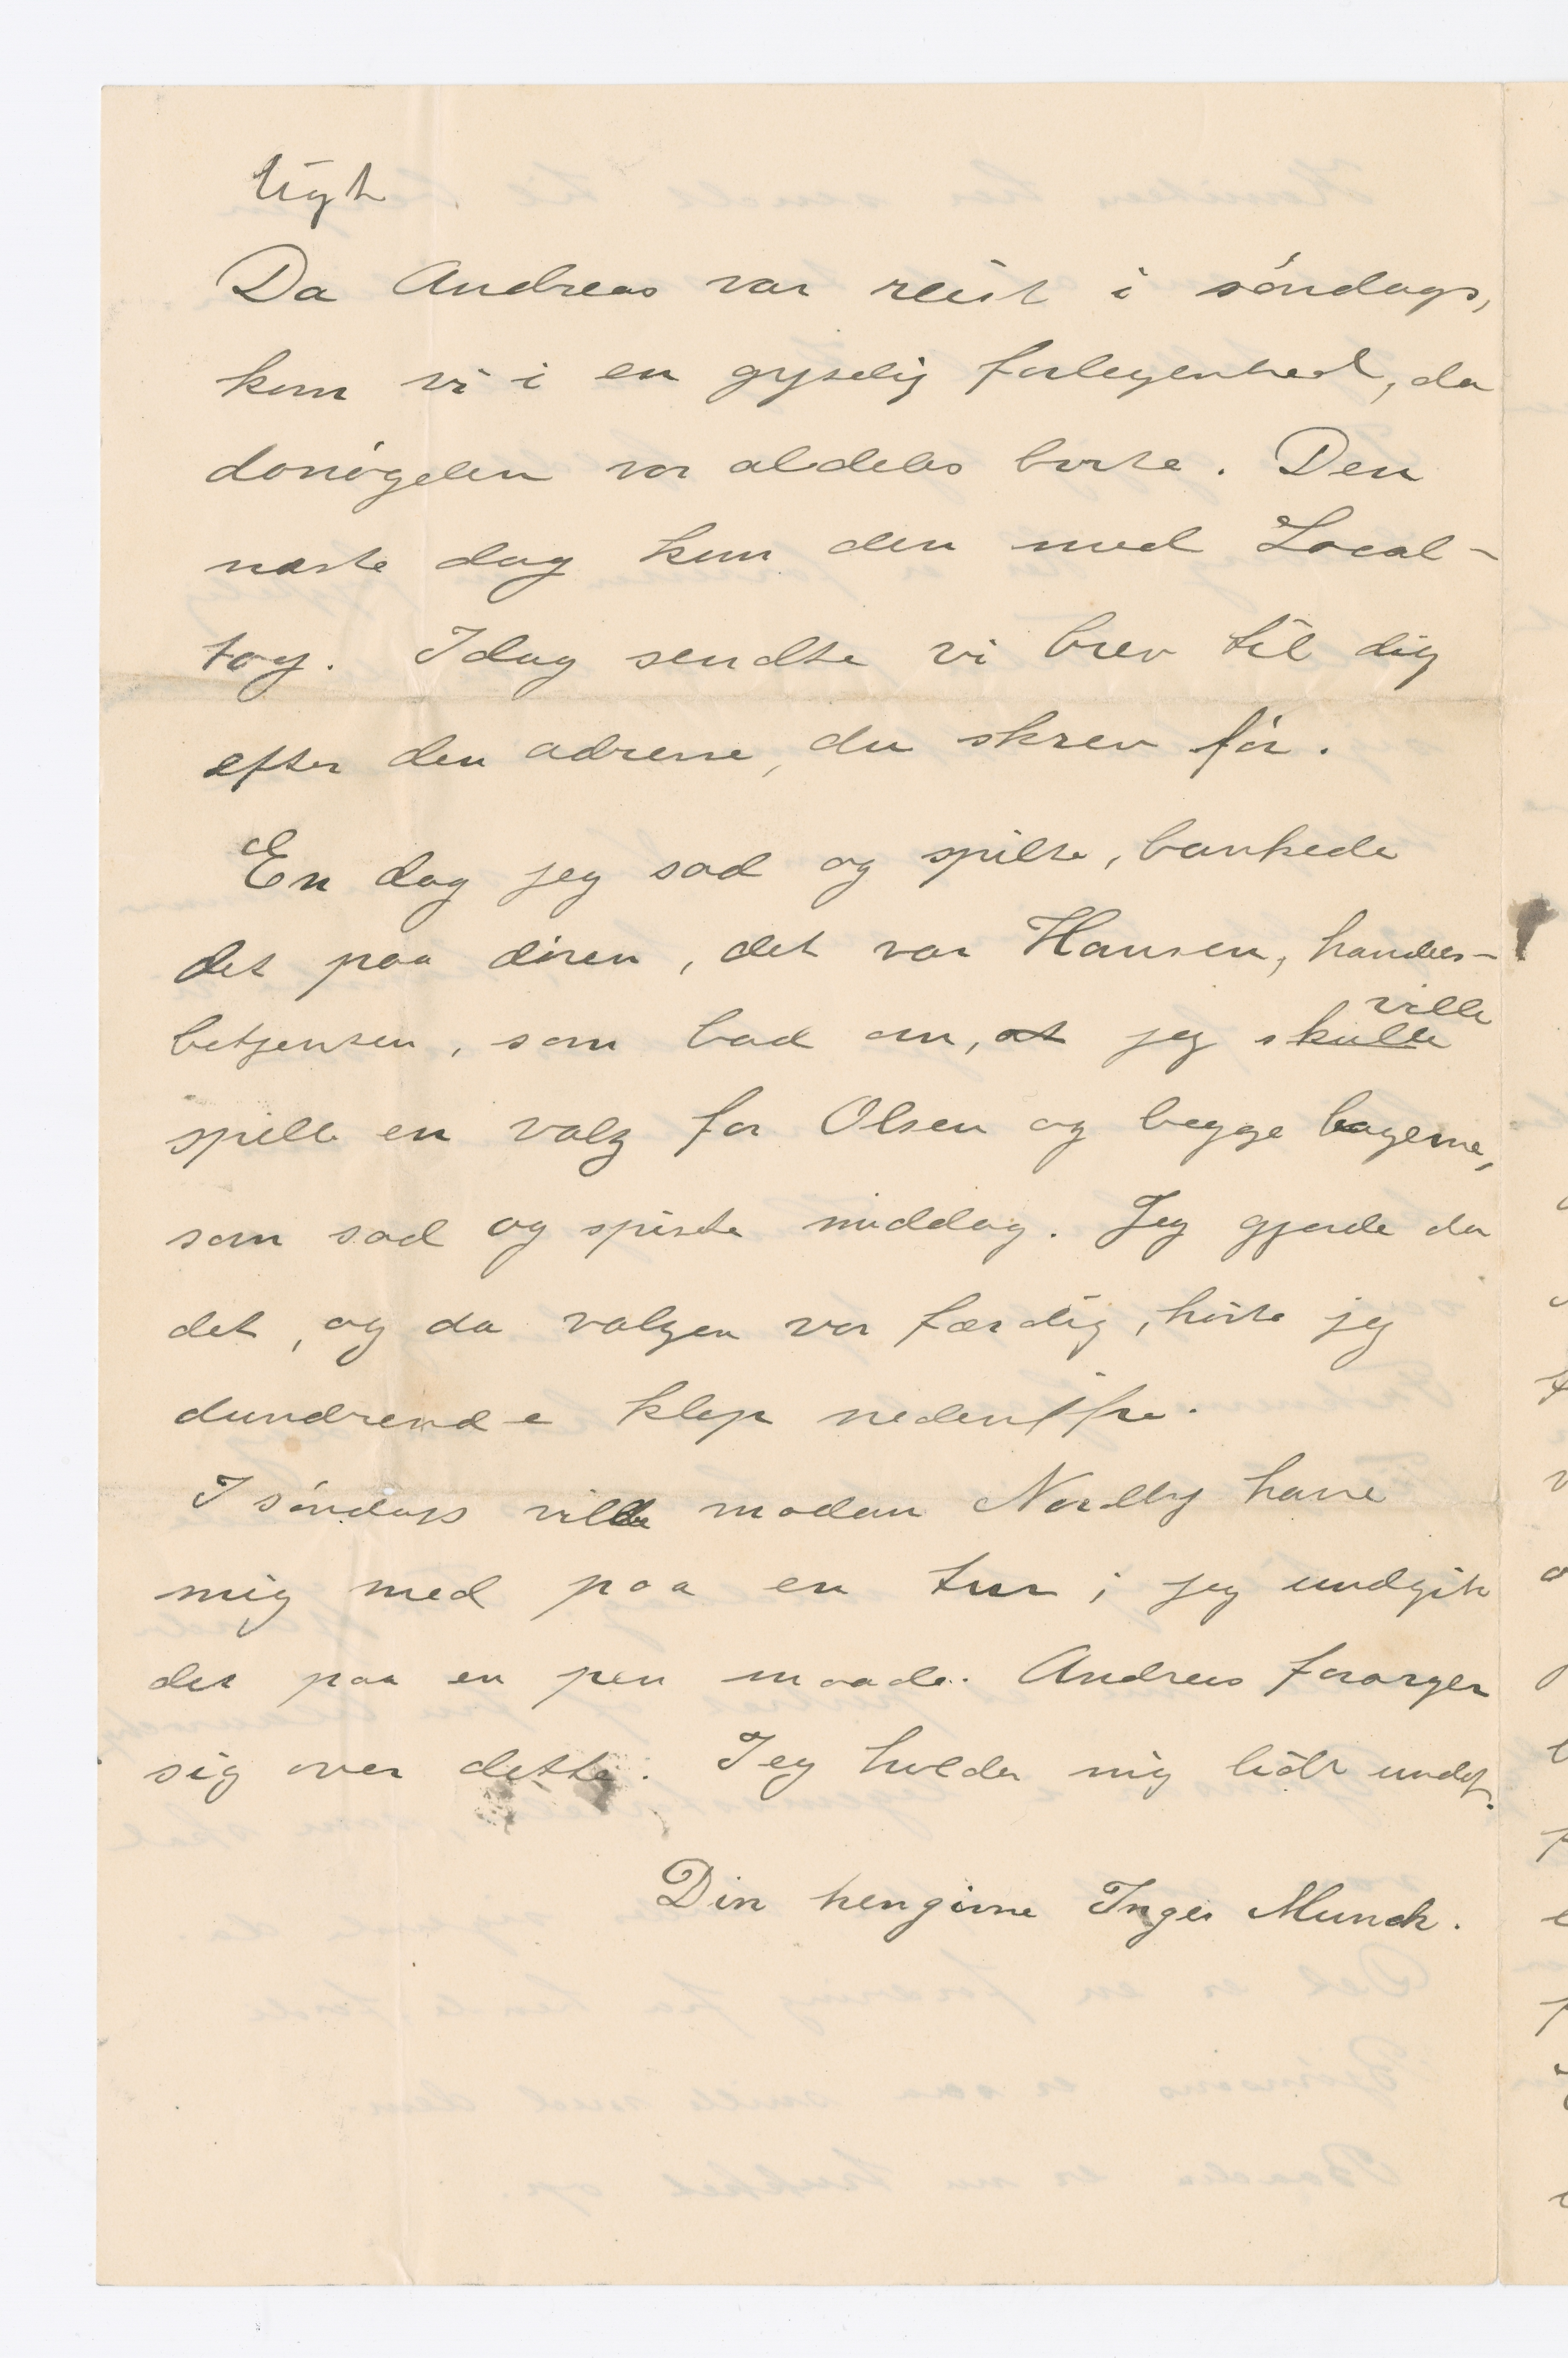 ligt
Da Andreas var reist i søndags,
kom vi i en gyselig forlegenhed, da
dønøgelen var aldeles borte. Den
næste dag kom den med Local-
tog. Idag sendte vi brev til dig
efter den adresse, du skrev før.
En dag jeg sad og spilte, bankede
det paa døren, det var Hansen, handels-
betjenten, som bad om, at jeg skulle ville
spille en valz for Olsen og begge bagerne,
som sad og spiste middag. Jeg gjorde da
det, og da valzen var færdig, hørte jeg
dundrende klap nedenifra.
I søndags ville madam Nordby have
mig med paa en tur; jeg undgik
det paa en pen maade. Andreas forarger
sig over dette. Jeg holder mig lidt undaf.
Din hengivne Inger Munch.